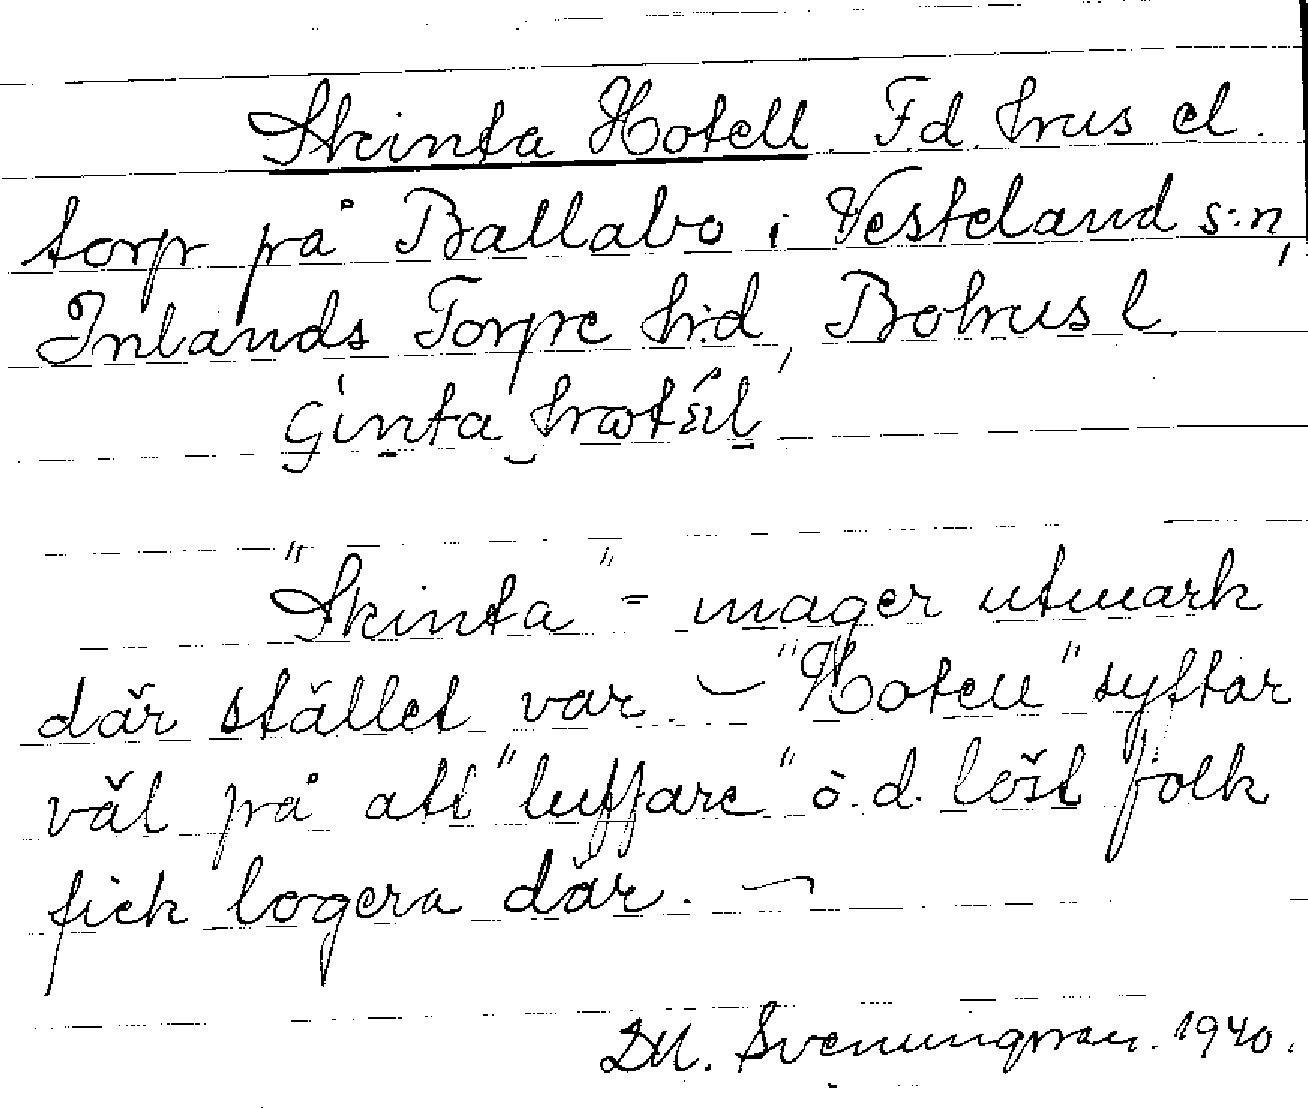 Skinta Hotell. F.d. hus el.
torp på Ballabo i Vesteland s:n,
Inlands Torpe h:d, Bohus l
"Skinta" - mager utmark
där stället var. — "Hotell" syftar
väl på att "luffare" o.d. löst folk
fick logera där. —
D.U. Svenungsson. 1940.